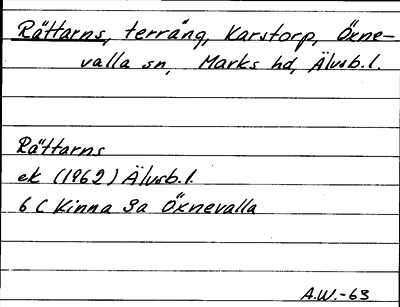 Rättarns, terräng, Karstorp, Ökne-
valla sn, Marks hd, Älvsb.l.
Rättarns
ek (1962) Älvsb.l.
6 C Kinna 3a Öknevalla
A.W.-63